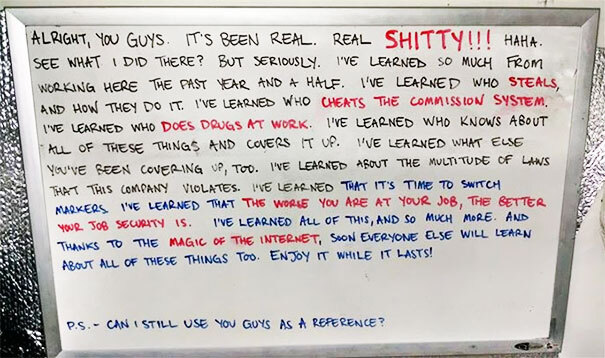 ALRIGHT, YOU GUYS. IT'S BEEN REAL. REAL SHITTY!!! HAHA.
SEE WHAT I DID THERE? BUT SERIOUSLY. I'VE LEARNED SO MUCH FROM
WORKING HERE THE PAST YEAR AND A HALF. I'VE LEARNED WHO STEALS,
AND HOW THEY DO IT. I'VE LEARNED WHO CHEATS THE COMMISSION SYSTEM.
I'VE LEARNED WHO DOES DRUGS AT WORK. I'VE LEARNED WHO KNOWS ABOUT
ALL OF THESE THINGS AND COVERS IT UP. I'VE LEARNED WHAT ELSE
YOU'VE BEEN COVERING UP, TOO. I'VE LEARNED ABOUT THE MULTITUDE OF LAWS
THAT THIS COMPANY VIOLATES. I'VE LEARNED THAT IT'S TIME TO SWITCH
MARKERS. I'VE LEARNED THAT THE WORSE YOU ARE AT YOUR JOB, THE BETTER
YOUR JOB SECURITY IS. I'VE LEARNED ALL OF THIS, AND SO MUCH MORE. AND
THANKS TO THE MAGIC OF THE INTERNET, SOON EVERYONE ELSE WILL LEARN
ABOUT ALL OF THESE THINGS TOO. ENJOY IT WHILE IT LASTS!
P.S. - CAN I STILL USE YOU GUYS AS A REFERENCE?